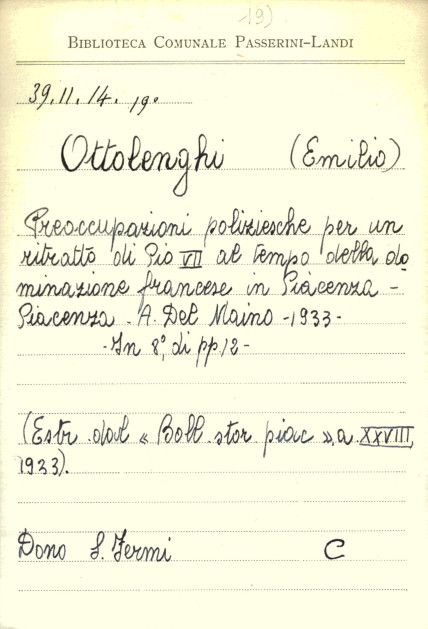 19)
BIBLIOTECA COMUNALE PASSERINI-LANDI
39.11.14.19º
Ottolenghi (Emilio)
Preoccupazioni poliziesche per un
ritratto di Pio VII al tempo della do
minazione francese in Piacenza -
Piacenza - A. Del Maino - 1933 -
- In 8º, di pp. 12 -
(Estr. dal « Boll. stor. piac. », a. XXVIII,
1933).
Dono S. Fermi C